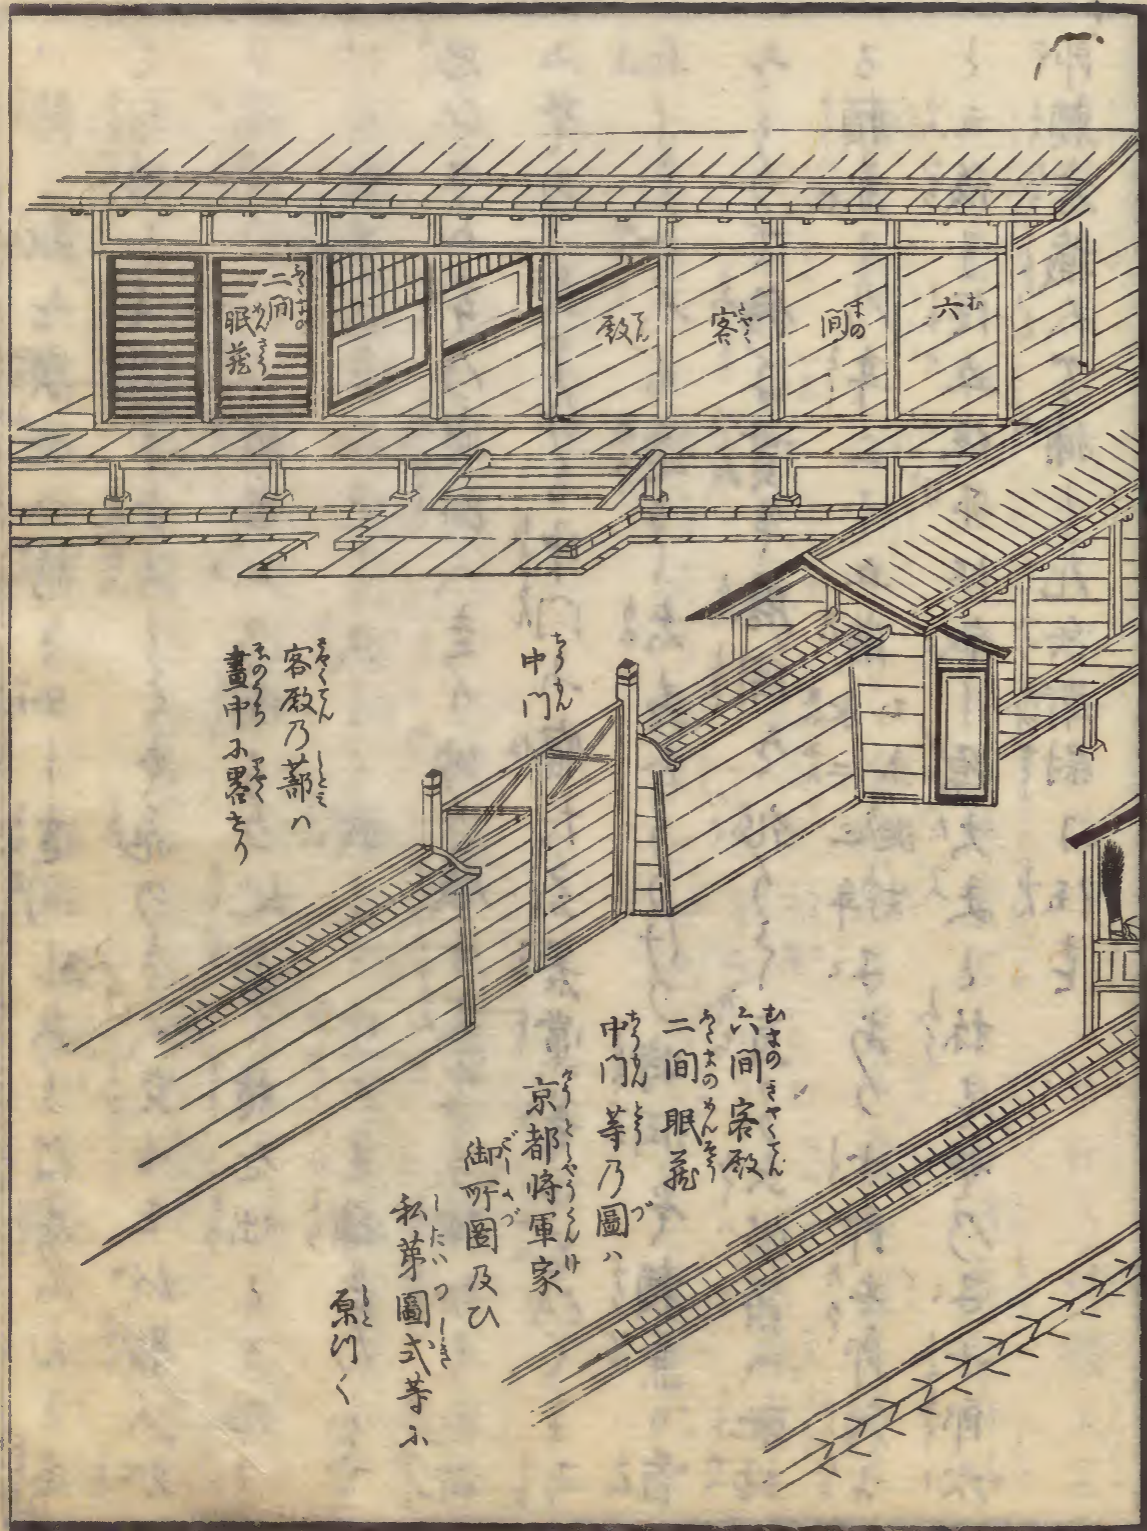 六間客殿
二間眠蔵
中門
客殿乃蔀ハ
畫中尓畧せり
六間客殿
二間眠蔵
中門等乃圖ハ
京都將軍家
御所圖及ひ
私苐圖式等尓
原つく